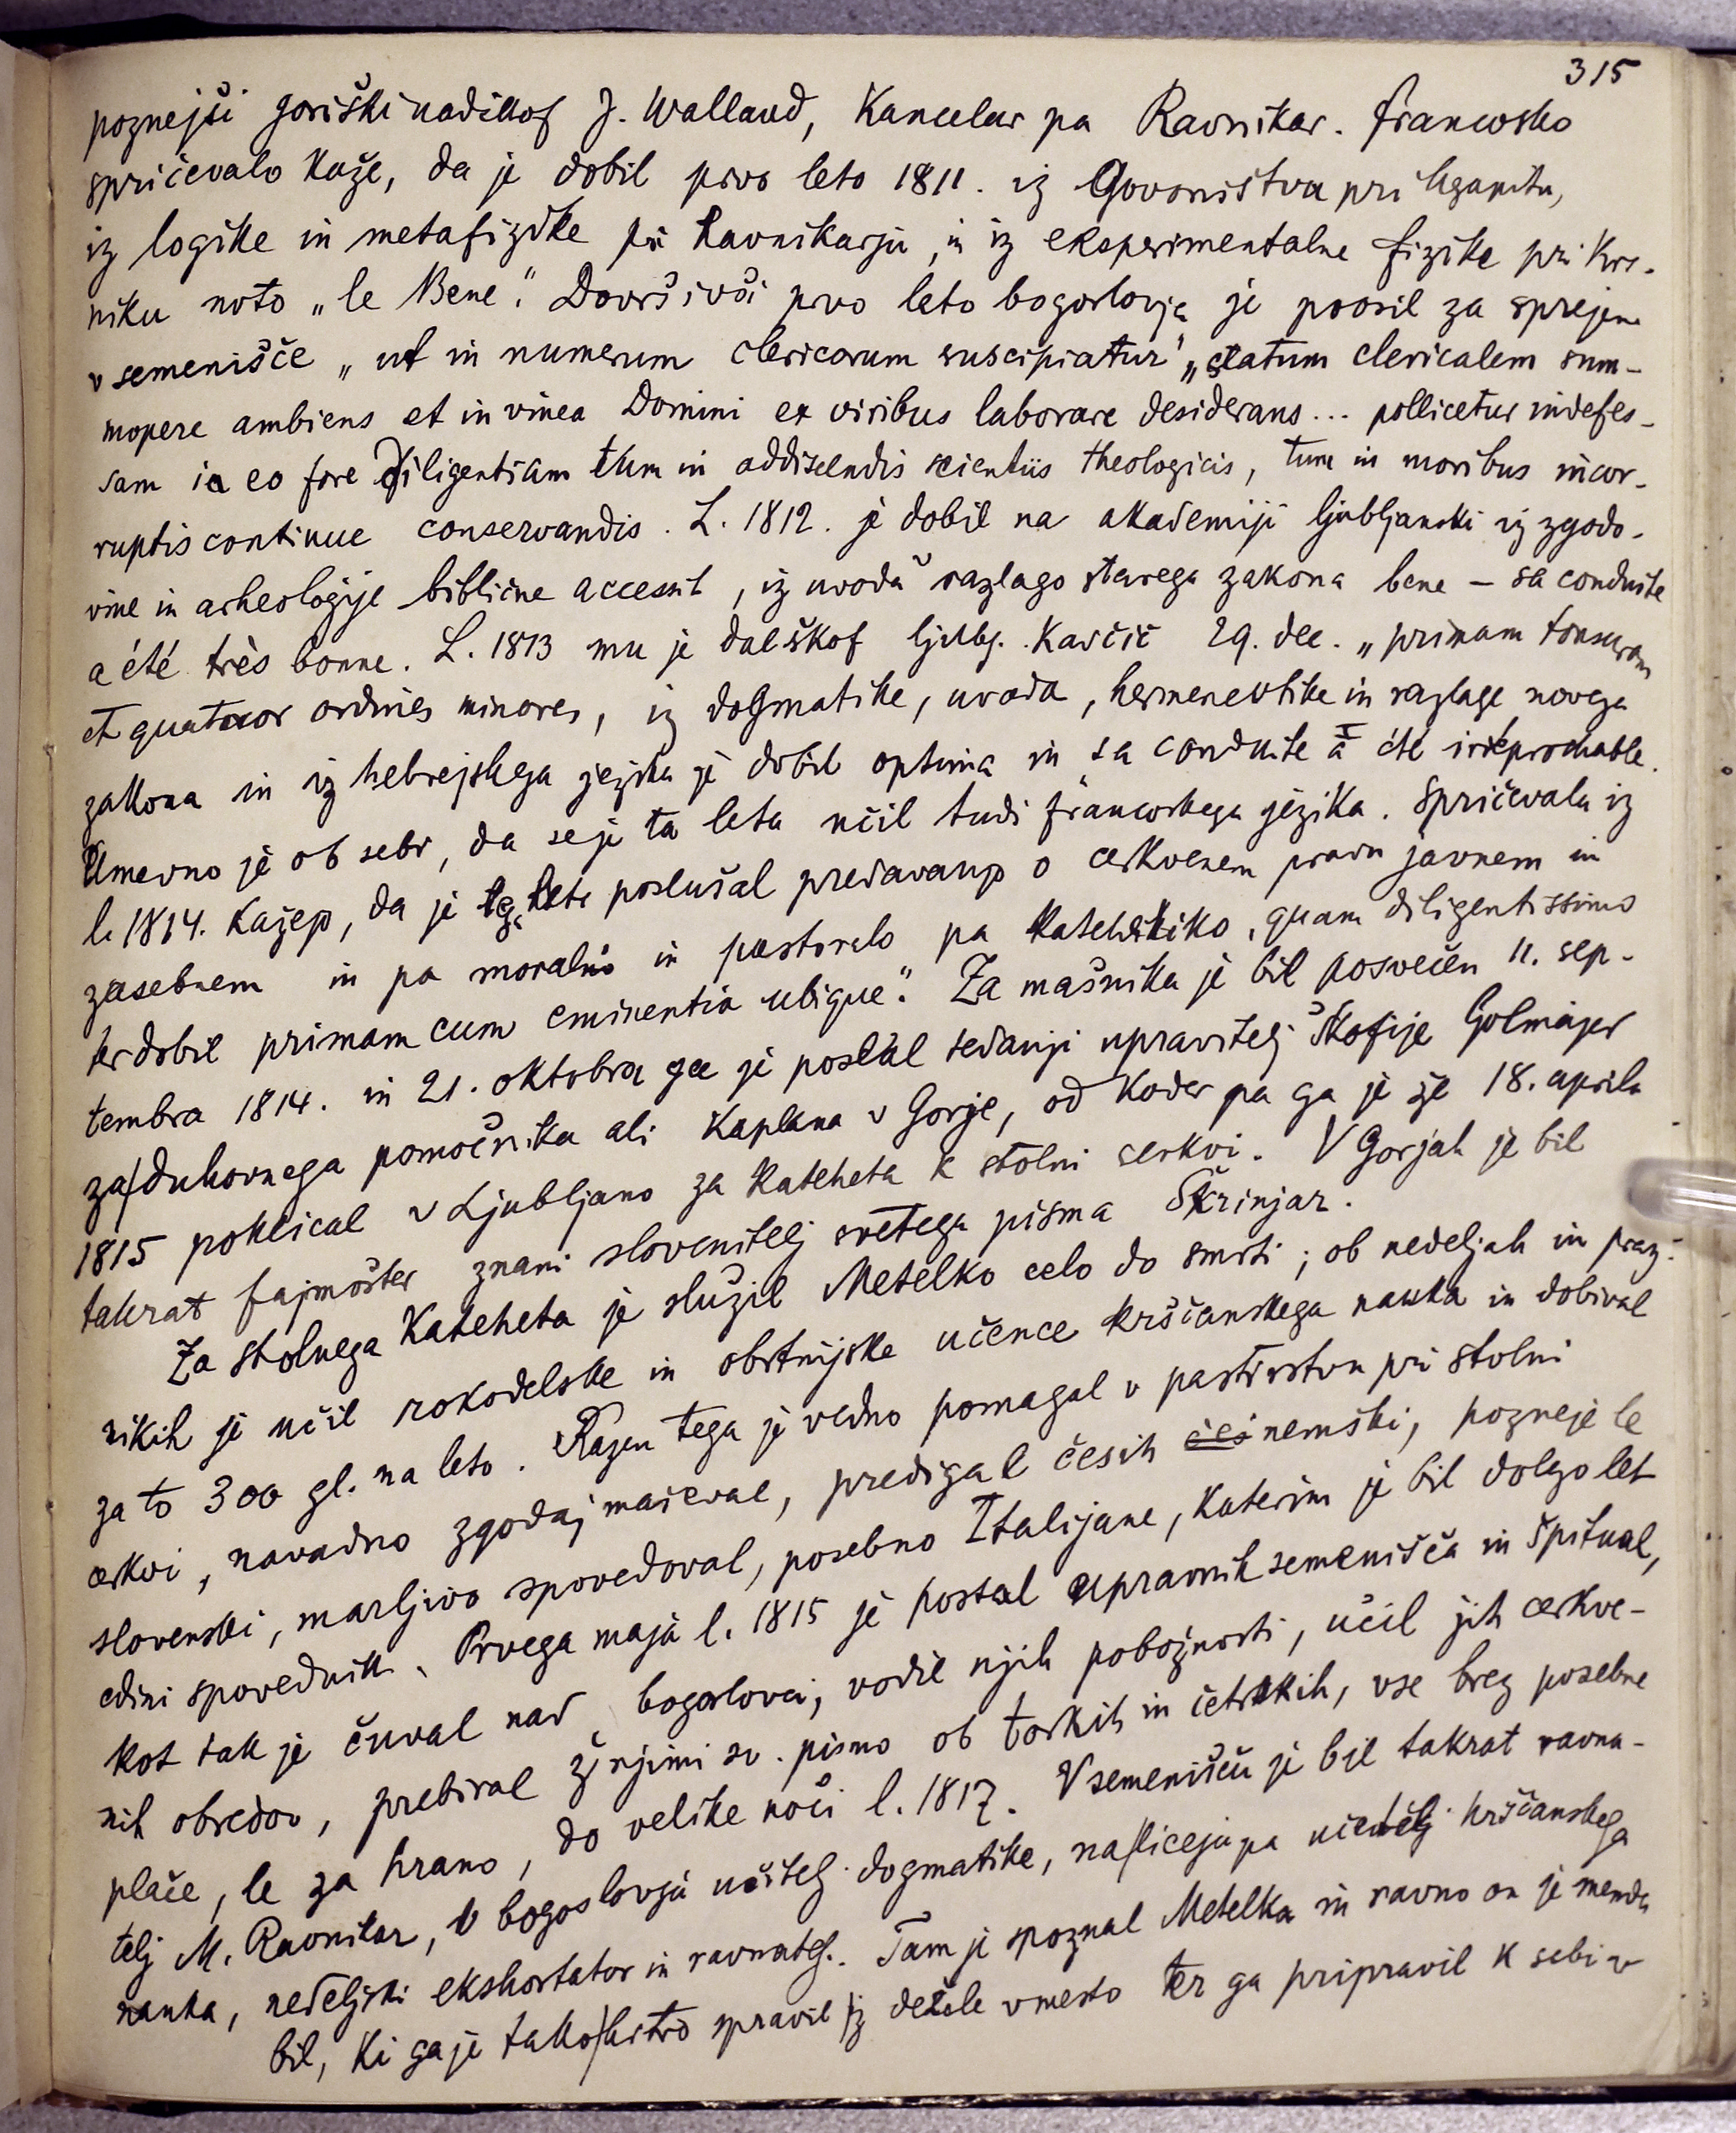 315
poznejši goriški nadškof J. Walland, Kancelar pa Ravnikar. francosko
spričevalo kaže, da je dobil prvo leto 1811. iz Govorništva pri
iz logike in metafizike pri Ravnikarju, in iz eksperimentalne fizike pri Krs-
niku noto „le Bene“. Dovršivši prvo leto bogoslovja je prosil za sprejem
v semenišče „ut in numerum clericorum suscipiatur“ „statum clericalem sum-
mopere ambiens et in vinea Domini ex viribus laborare desiderans... pollicetur indefes-
sam in eo fore diligentiam tum in addiscendis scientiis theologicis, tum in moribus incor-
ruptis continue conservandis. L. 1812. je dobil na akademiji ljubljanski iz zgodo-
vine in arheologije biblične accessit, iz uvoda razlago starega zakona bene – sa conduite
a été très bonne. L. 1813 mu je dal škof ljublj. Kavčič 29. dec. „primam tonsuram
et quatuor ordines minores, iz dogmatike, uvoda, hermenevtike in razlage novega
zakona in iz hebrejskega jezika je dobil optima in sa conduite a été irréprochable.
Umevno je ob sebi, da se je ta leta učil tudi francoskega jezika. Spričevala iz
l. 1814. kažejo, da je leta poslušal predavanja o cerkvenem pravu javnem in
zasebnem in pa moralno in pastoralo pa katehetiko, quam diligentissimo
ter dobil primam cum eminentia ubique“. Za mašnika je bil posvečen 11. sep-
tembra 1814. in 21. oktobra ga je poslal tedanji upravitelj škofije Golmajer
za duhovnega pomočnika ali kaplana v Gorje, od koder pa ga je že 18. aprila
1815 poklical v Ljubljano za kateheta k stolni cerkvi. V Gorjah je bil
takrat fajmošter znani slovenitelj svetega pisma Škrinjar.
Za stolnega Kateheta je služil Metelko celo do smrti; ob nedeljah in praz-
nikih je učil rokodelske in obrtnijske učence krščanskega nauka in dobival
za to 300 gl. na leto. Razen tega je vedno pomagal v pastirstvu pri stolni
cerkvi, navadno zgodaj maševal, predigal česih čes nemški, pozneje le
slovenski, marljivo spovedoval, posebno Italijane, katerim je bil dolgo let
edini spovednik. Prvega maja l. 1815 je postal upravnik semenišča in špitual,
kot tak je čuval nad bogoslovci, vodil njih pobožnosti, učil jih cerkve-
nih obredov, prebiral ž njimi sv. pismo ob torkih in četrtkih, vse brez posebne
plače, le za hrano, do velike noči l. 1817. V semenišču je bil takrat ravna-
telj M. Ravnikar, v bogoslovju učitelj dogmatike, na liceju pa učitelj krščanskega
nauka, nedeljski ekshortator in ravnatelj. Tam je spoznal Metelka in ravno on je menda
bil, ki ga je tako hitro spravil iz dežele v mesto ter ga pripravil k sebi v